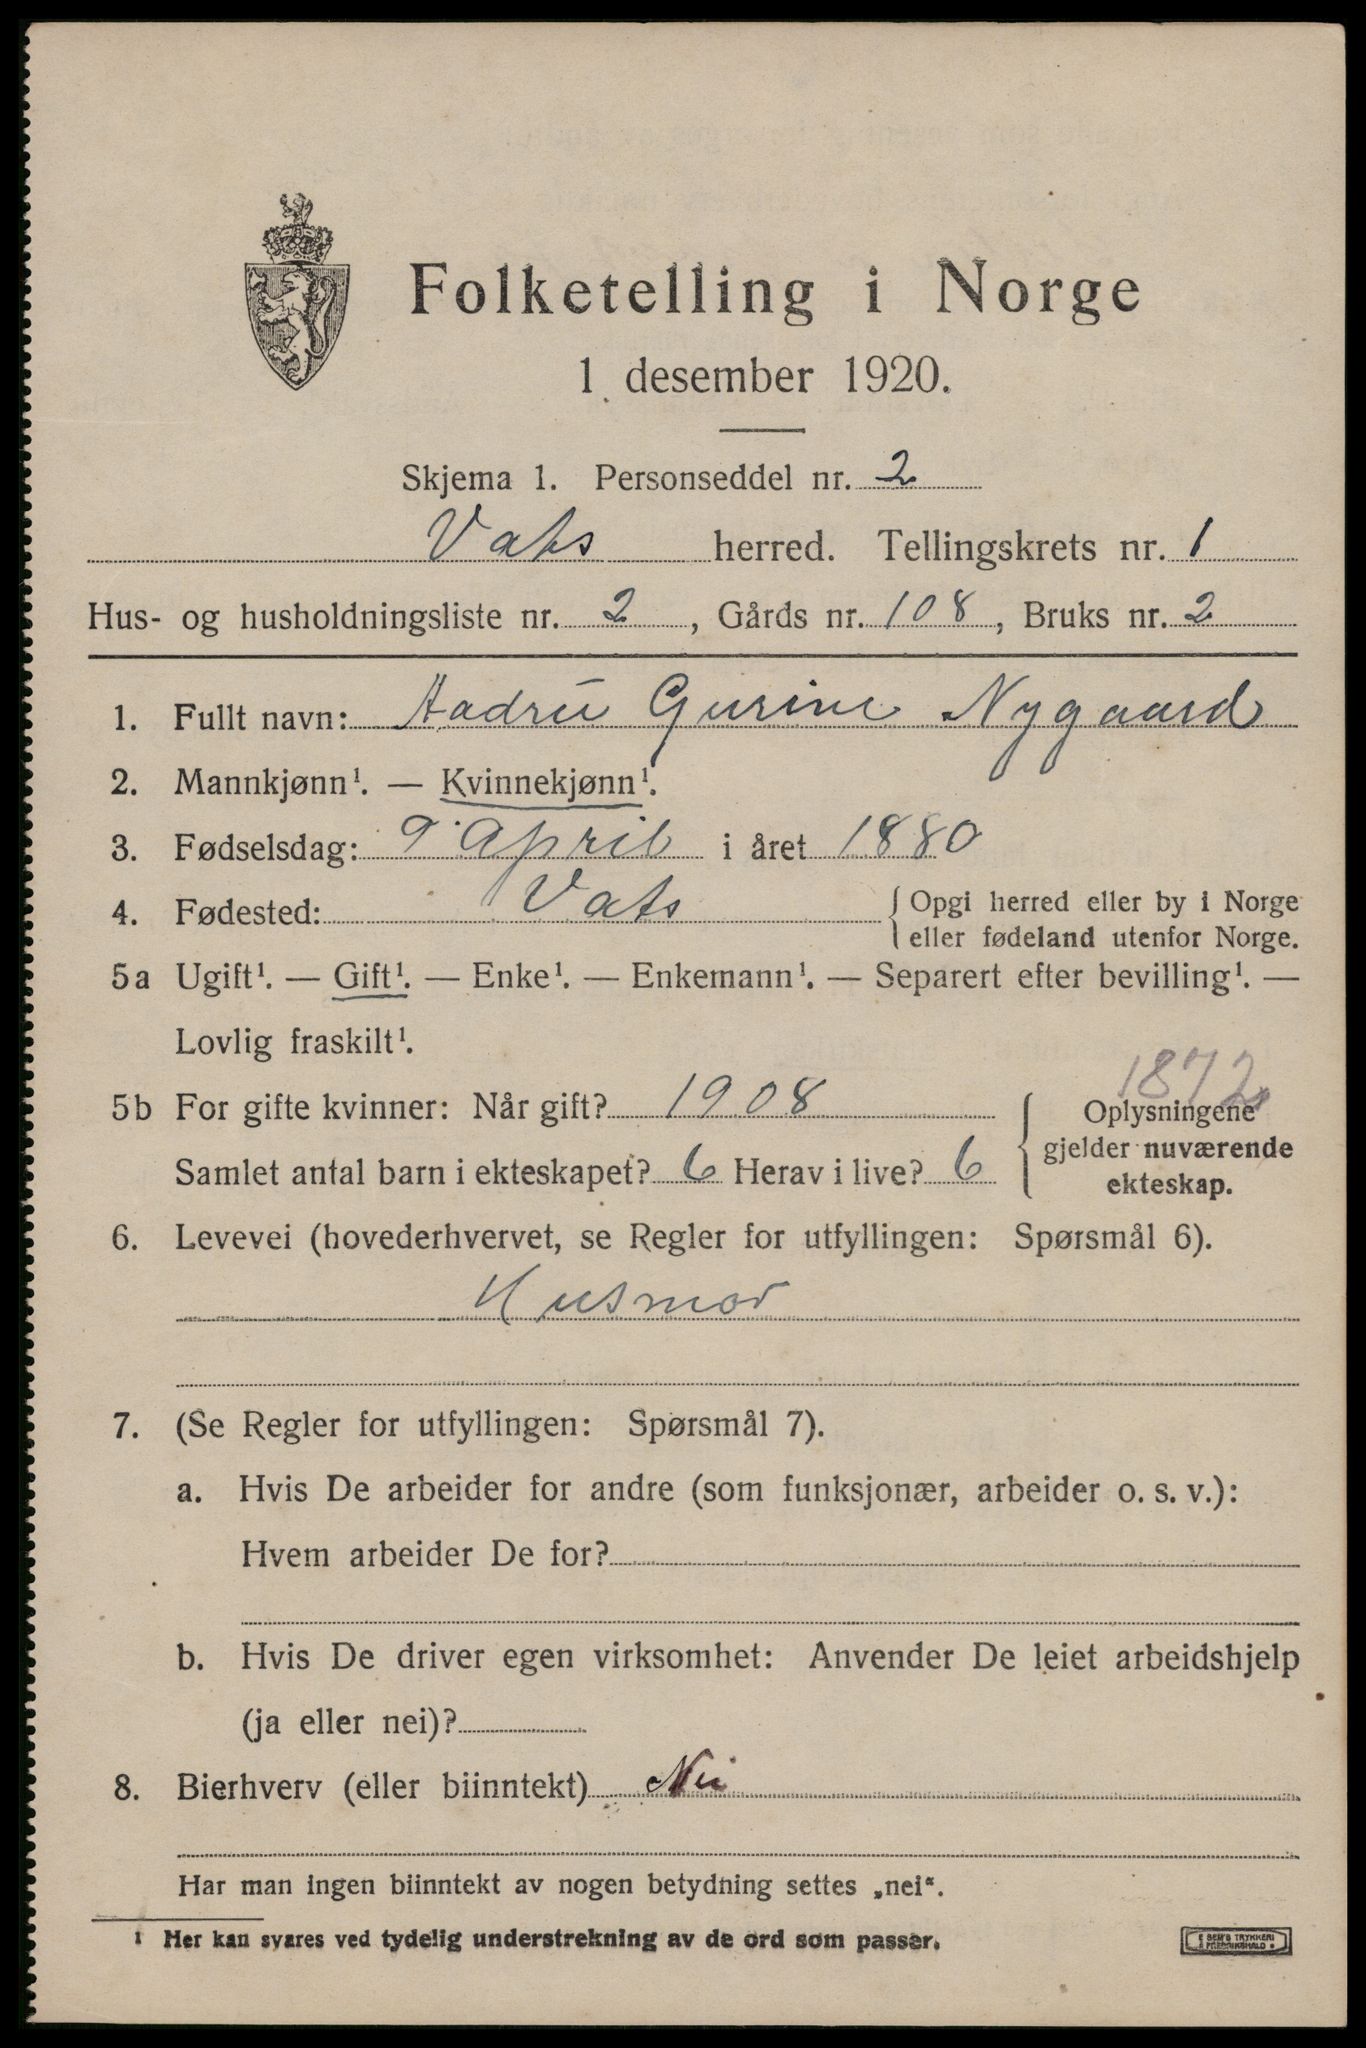 Folketelling i Norge
1 desember 1920.
Skjema 1. Personseddel nr. 2
Vats herred. Tellingskrets nr. 1
Hus- og husholdningsliste nr. 2, Gårds nr. 108, Bruks nr. 2
1. Fullt navn: Gurine Nygaard
2. Mannkjønn¹. — Kvinnekjønn¹.
3. Fødselsdag: 9 April i året 1880
4. Fødested: Vats { Opgi herred eller by i Norge
eller fødeland utenfor Norge.
5a Ugift¹. — Gift¹. — Enke¹. — Enkemann¹. — Separert efter bevilling¹. —
Lovlig fraskilt¹.
1872
5b For gifte kvinner: Når gift? 1908 { Oplysningene
gjelder nuværende
Samlet antal barn i ekteskapet? 6 Herav i live? 6
ekteskap.
6. Levevei (hovederhvervet, se Regler for utfyllingen: Spørsmål 6).
Husmor
7. (Se Regler for utfyllingen: Spørsmål 7).
a. Hvis De arbeider for andre (som funksjonær, arbeider o. s. v.):
Hvem arbeider De for?
b. Hvis De driver egen virksomhet: Anvender De leiet arbeidshjelp
(ja eller nei)?
8. Bierhverv (eller biinntekt) Nei
Har man ingen biinntekt av nogen betydning settes „nei“.
¹ Her kan svares ved tydelig understrekning av de ord som passer.
SEM'S TRYKKERI
FREDRIKSHALD